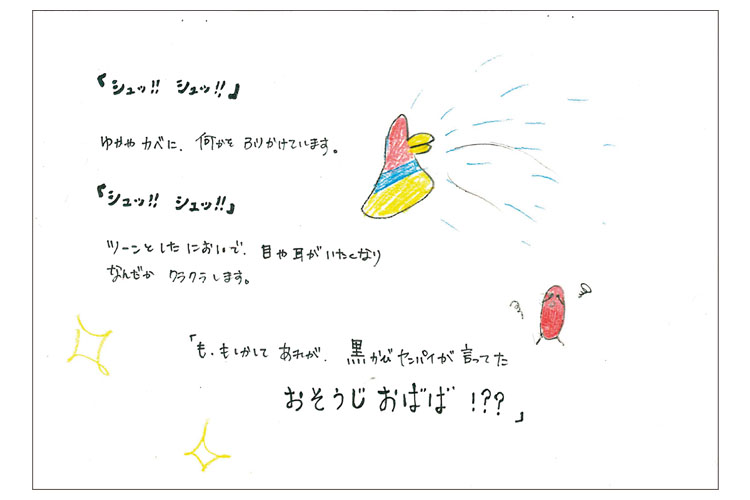 『シュッ!! シュッ!!』
ゆかや カベに、何かを ふりかけています。
『シュッ!! シュッ!!』
ツーンとした においで、目や耳がいたくなり
なんだか クラクラします。
「も、もしかして あれが、黒かびセンパイが言ってた
おそうじ おばば !??」